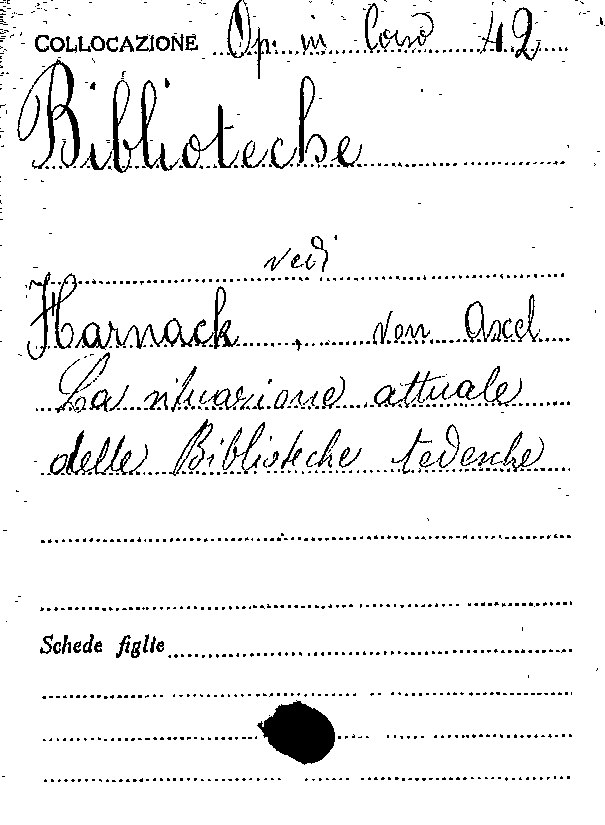 COLLOCAZIONE Op. in Corso 42
Biblioteche
vedi
Harnack, von Axel
La situazione attuale
delle Biblioteche tedesche
Schede figlie